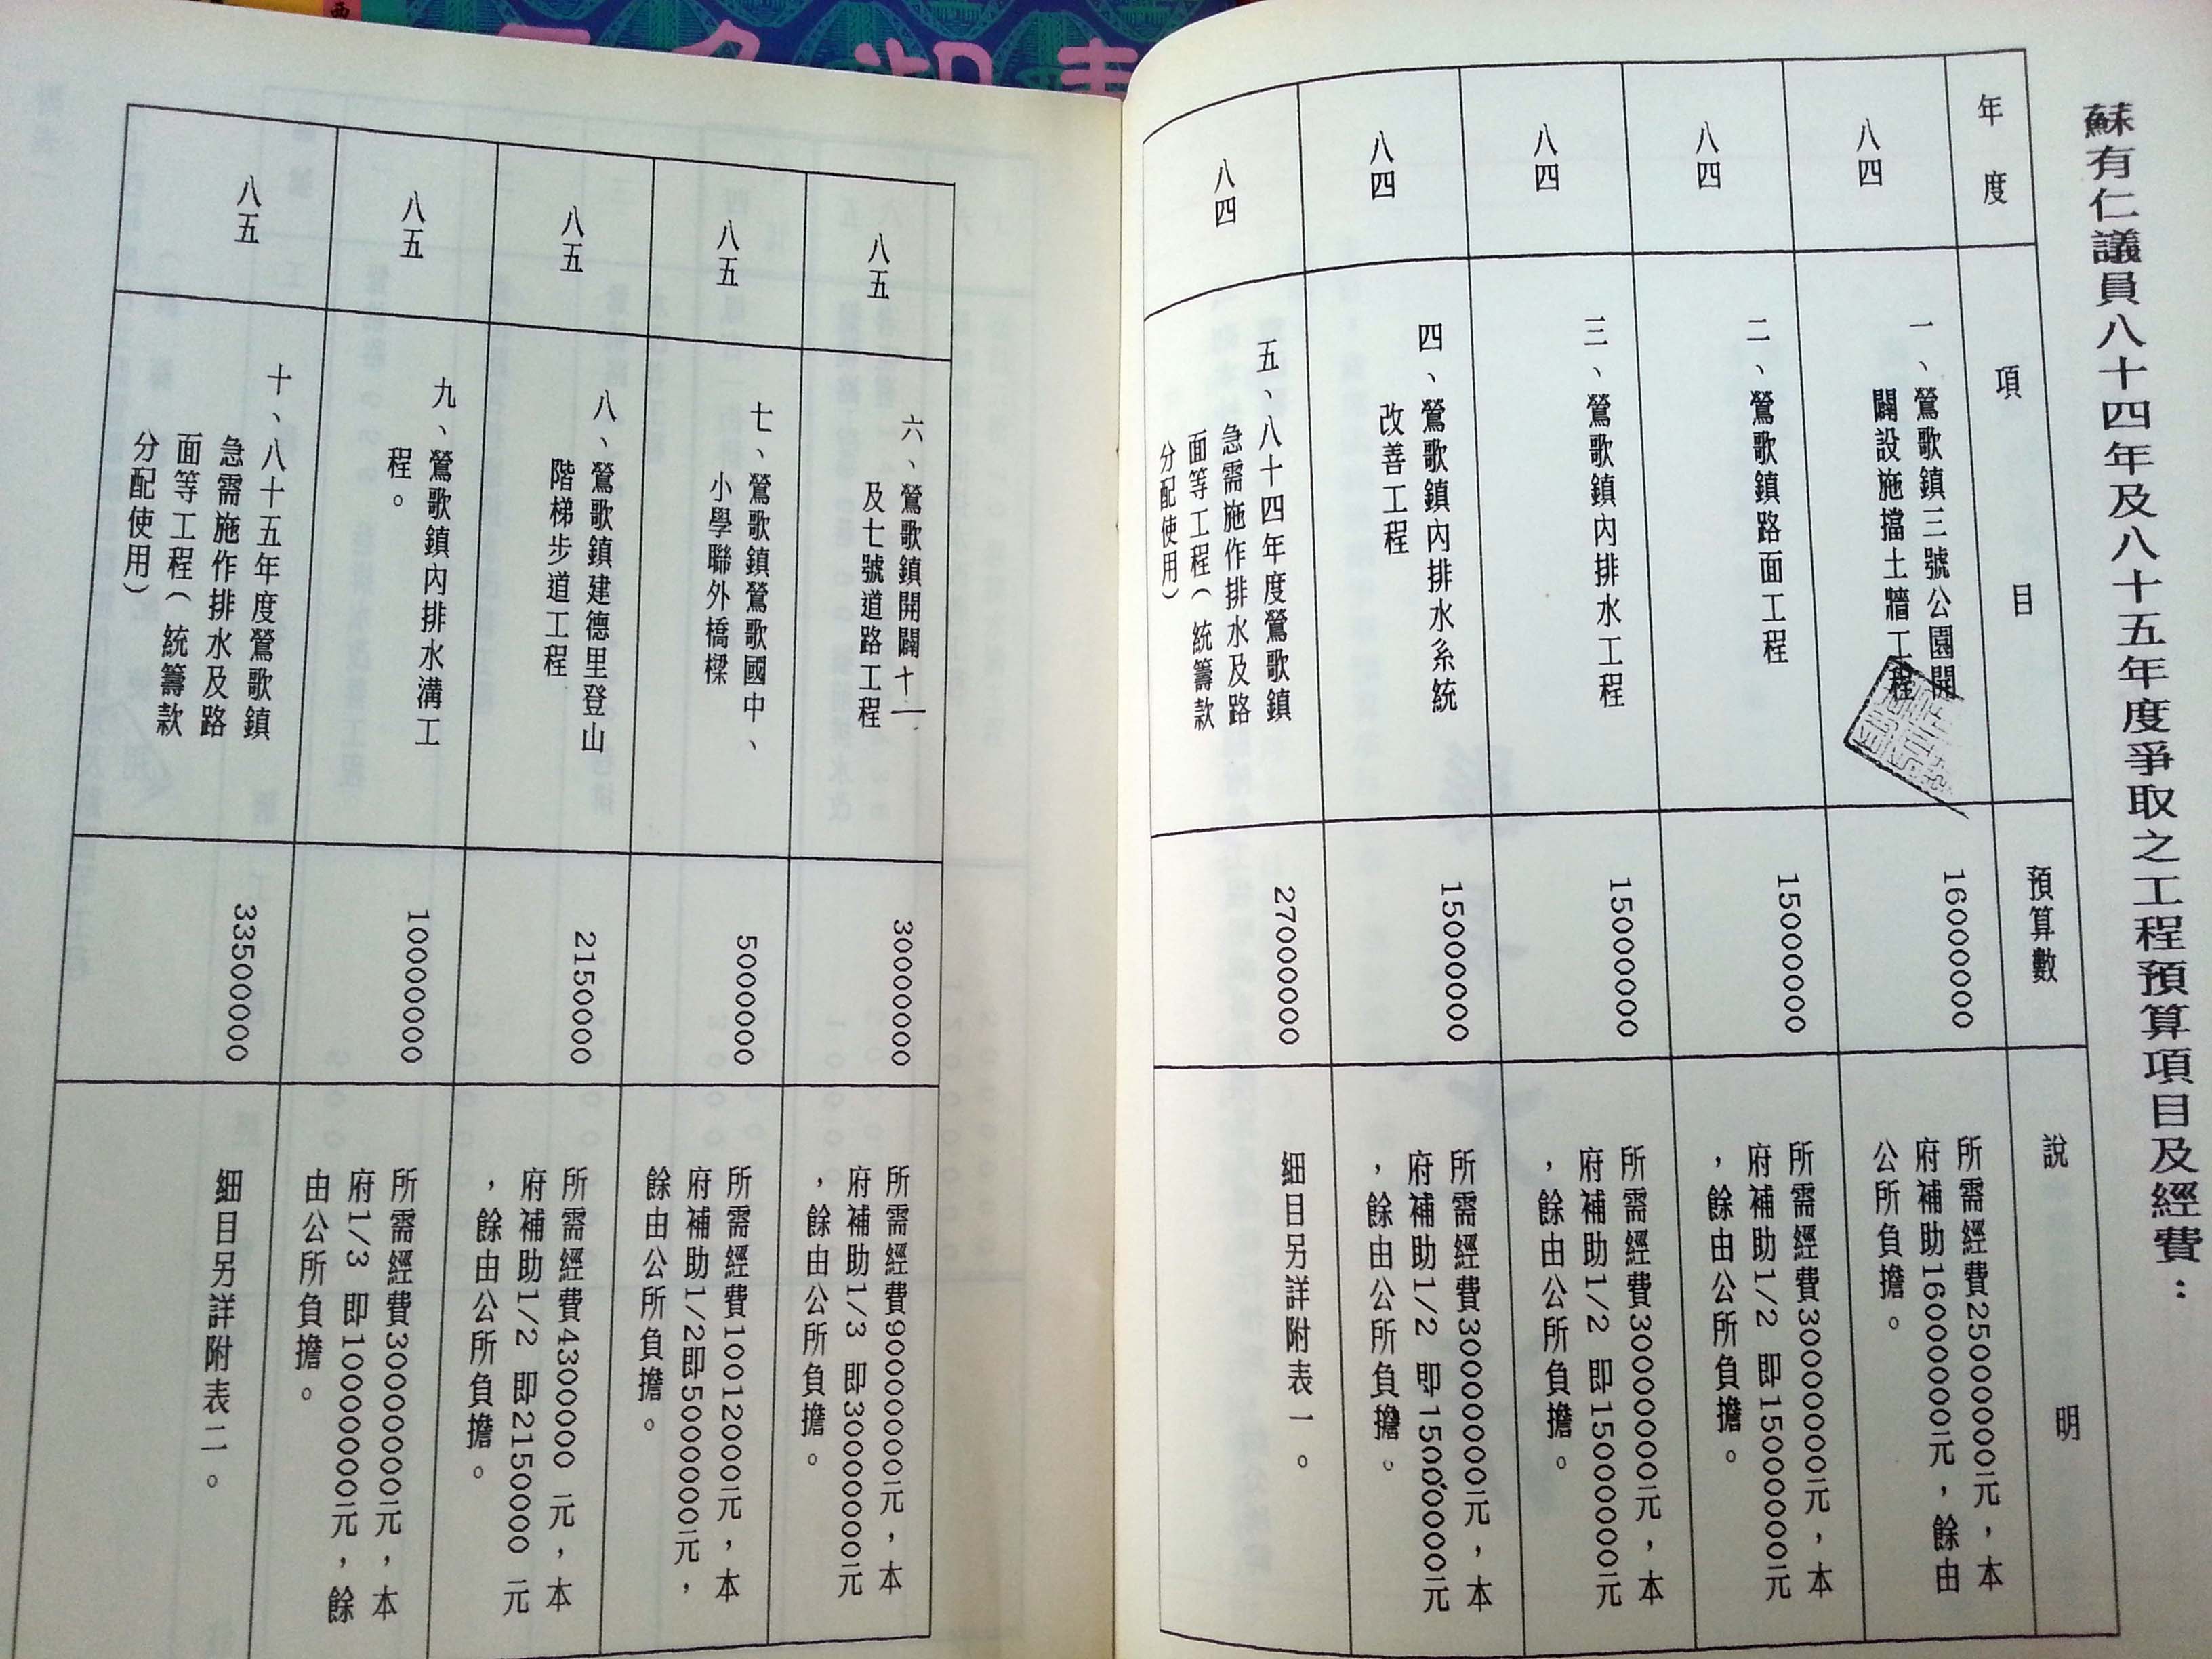 蘇有仁議員八十四年及八十五年度爭取之工程預算項目及經費：
年度
項目
預算數
說明
八四
一、鶯歌鎮三號公園開
闢設施擋土牆工程
16000000
所需經費25000000元，本
府補助16000000元，餘由
公所負擔。
八四
二、鶯歌鎮路面工程
15000000
所需經費30000000元，本
府補助1/2 即15000000元
，餘由公所負擔。
八四
三、鶯歌鎮內排水工程
15000000
所需經費30000000元，本
府補助1/2 即15000000元
，餘由公所負擔。
八四
四、鶯歌鎮內排水系統
改善工程
15000000
所需經費30000000元，本
府補助1/2 即15000000元
，餘由公所負擔。
八四
五、八十四年度鶯歌鎮
急需施作排水及路
面等工程（統籌款
分配使用）
27000000
細目另詳附表一。
八五
六、鶯歌鎮開闢十一
及七號道路工程
30000000
所需經費90000000元，本
府補助1/3 即30000000元
，餘由公所負擔。
八五
七、鶯歌鎮鶯歌國中、
小學聯外橋樑
5000000
所需經費10012000元，本
府補助1/2即5000000元，
餘由公所負擔。
八五
八、鶯歌鎮建德里登山
階梯步道工程
2150000
所需經費4300000 元，本
府補助1/2 即2150000 元
，餘由公所負擔。
八五
九、鶯歌鎮內排水溝工
程。
10000000
所需經費30000000元，本
府1/3 即10000000元，餘
由公所負擔。
八五
十、八十五年度鶯歌鎮
急需施作排水及路
面等工程（統籌款
分配使用）
33500000
細目另詳附表二。